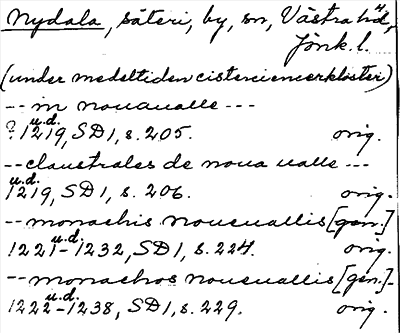 Nydala, säteri, by, sn, Västra hd,
Jönk. l.
(under medeltiden cisterciencerkloster)
-- in nouaualle ---
? 1219, u.d. SD1, s. 205. orig.
-- claustrales de noua ualle ---
1219, u.d. SD1, s. 206. orig.
-- monachis noueuallis [gen.]
1221-1232, u.d. SD1, s. 224. orig.
-- monachos noueuallis [gen.]-
1222-1238, u.d. SD1, s. 229. orig.